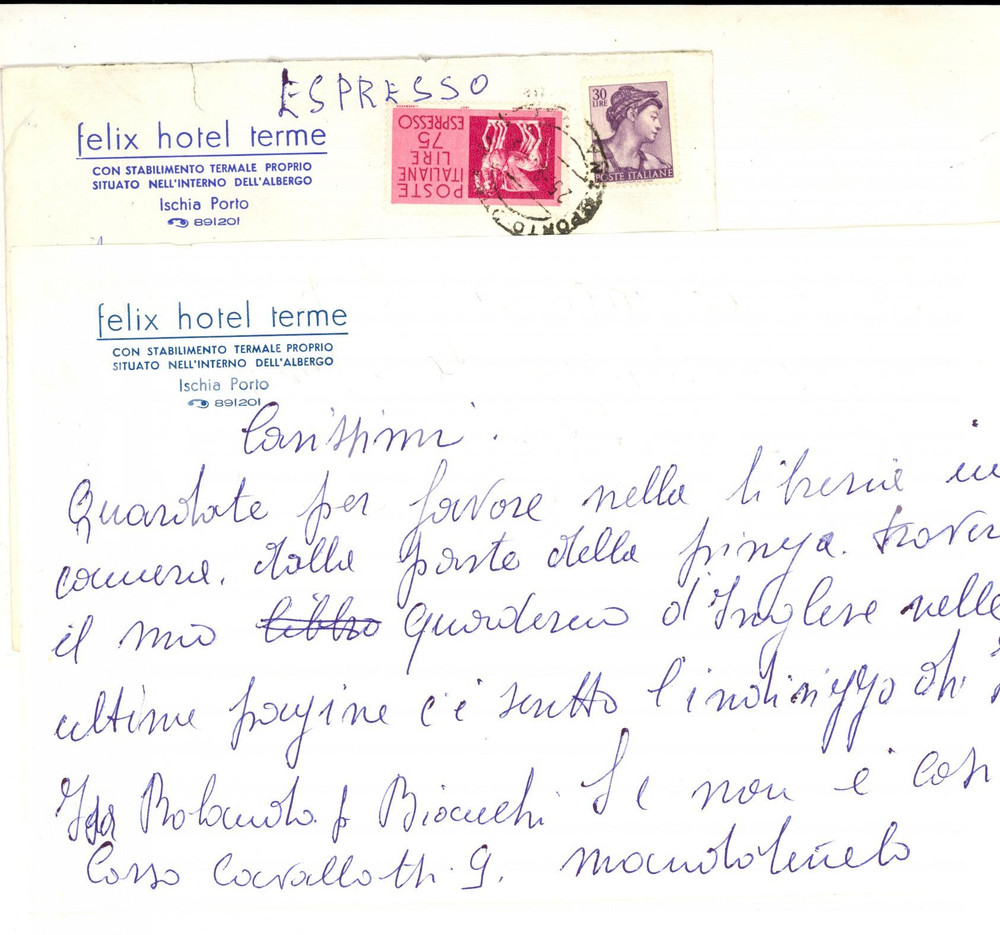 ESPRESSO
felix hotel terme
CON STABILIMENTO TERMALE PROPRIO
SITUATO NELL'INTERNO DELL'ALBERGO
Ischia Porto
891201
POSTE
ITALIANE
LIRE
75
ESPRESSO
30
LIRE
POSTE ITALIANE
PORTO
felix hotel terme
CON STABILIMENTO TERMALE PROPRIO
SITUATO NELL'INTERNO DELL'ALBERGO
Ischia Porto
891201
Carissimi.
Guardate per favore nella libreria in
camera. dalla parte della
il mio libbro quaderno d'Inglese nelle
ultime pagine c'è scritto l'indirizzo di
Rolando Bianchi Se non è così
Corso Cavallotti. 9. mandatemelo